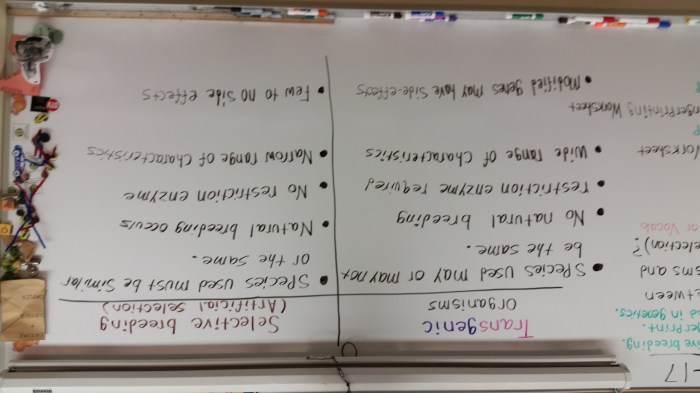 -17
ive breeding.
erprint.
d in genetics.
etween
sms and
election)?
or Vocab
Worksheet
ngerprinting Worksheet
Transgenic
organisms
• Species used may or may not
be the same.
• No natural breeding
• restriction enzyme required
• Wide range of characteristics
• Modified genes may have side-effects
Selective breeding
(Artificial selection)
• Species used must be similar
or the same.
• Natural breeding occurs
• No restriction enzyme
• Narrow range of characteristics
• Few to no side effects